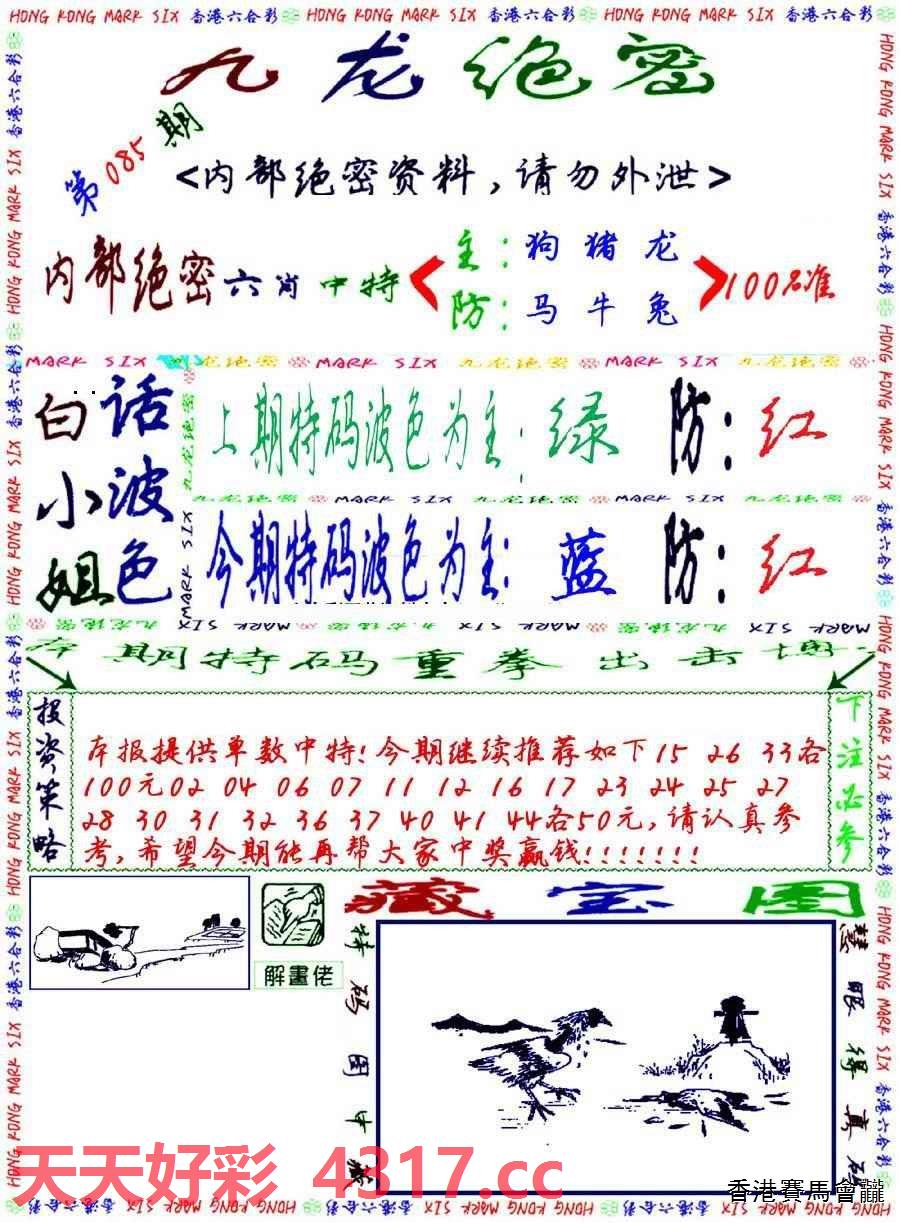 HONG KONG MARK SIX 香港六合彩 HONG KONG MARK SIX 香港六合彩 HONG KONG MARK SIX 香港六合彩
九龙绝密
第085期
<内部绝密资料,请勿外泄>
内部绝密六肖中特
主:狗猪龙
防:马牛兔
100%准
MARK SIX 九龙绝密 MARK SIX 九龙绝密 MARK SIX 九龙绝密
白小姐
话波色
上期特码波色为主:绿 防:红
九龙绝密 MARK SIX 九龙绝密 MARK SIX 九龙绝密
今期特码波色为主:蓝 防:红
本期特码重拳出击
投资策略
本报提供单数中特!今期继续推荐如下15 26 33各
100元02 04 06 07 11 12 16 17 23 24 25 27
28 30 31 32 36 37 40 41 44各50元,请认真参
考,希望今期能再帮大家中奖赢钱!!!!!!!
下注必参
解畫佬
藏宝图
特码图中
慧眼得真
天天好彩 4317.cc
香港賽馬會